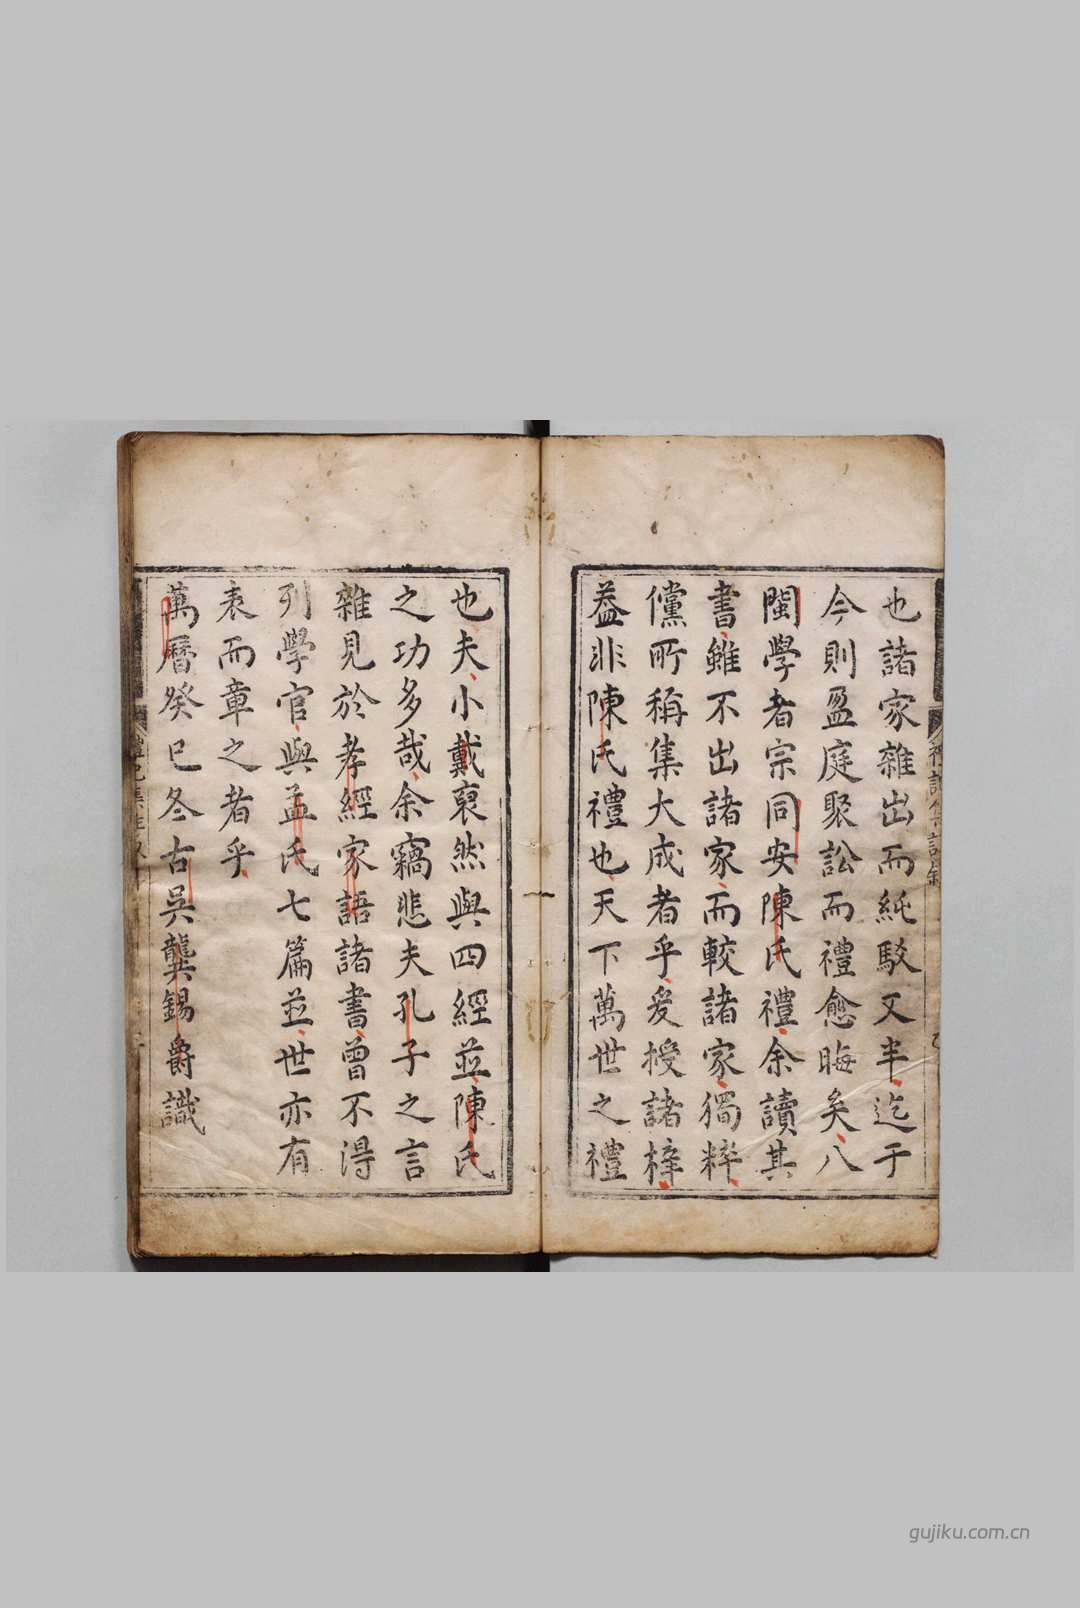 也諸家雜出而紕駁又半迄于
今則盈庭聚訟而禮愈晦矣八
閩學者宗同安陳氏禮余讀其
書雖不出諸家而較諸家獨粹
儻所稱集大成者乎爰授諸梓
葢非陳氏禮也天下萬世之禮
也夫小戴裒然與四經並陳氏
之功多哉余竊悲夫孔子之言
雜見於孝經家語諸書曾不得
列學官與孟氏七篇並世亦有
表而章之者乎
萬曆癸巳冬古吳龔錫爵識
gujiku.com.cn